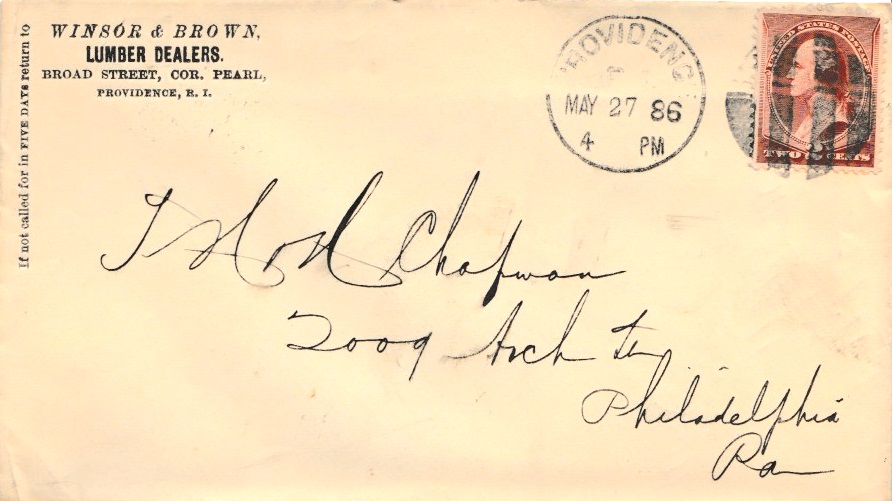 WINSOR & BROWN,
LUMBER DEALERS.
BROAD STREET, COR. PEARL,
PROVIDENCE, R. I.
If not called for in FIVE DAYS return to
PROVIDENC
MAY 27 86
4 PM
UNITED STATES POSTAGE
TWO CENTS
Chapman
2009 Arch
Philadelphia
Pa